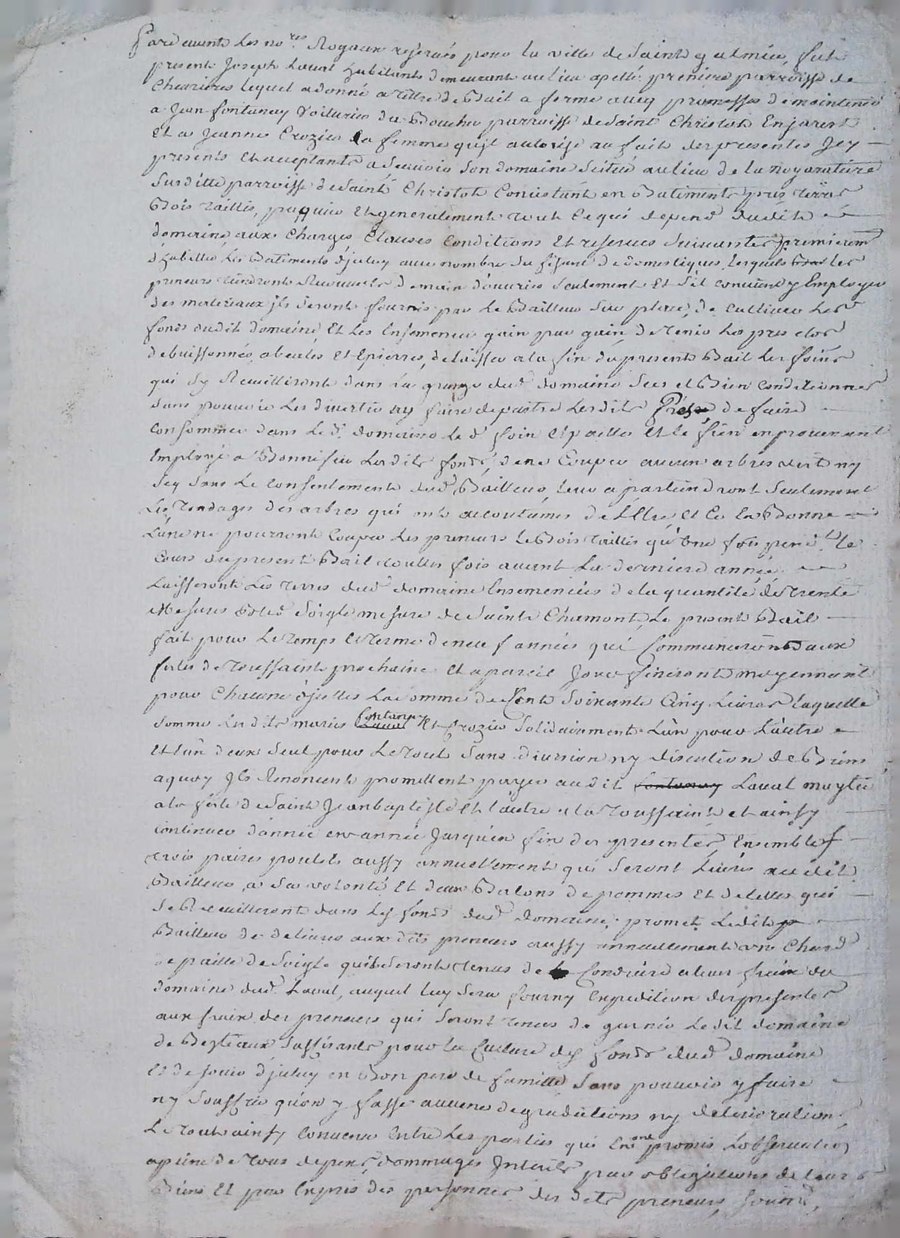 Pardevant Les no.res Royaux reservés pour la ville de Saint galmier, fut
present Joseph Laval habitant demeurant au lieu apellé premiere parroisse de
Chevrieres lequel a donné a titre de Bail a ferme avec promesse de maintenir
a Jean fontanay Voiturier du Boucher parroisse de Saint Christoth En Jarest
Et a Jeanne Crozier Sa femme qu'il autorise au fait des presentes Icy
presents Et acceptants a Scavoir Son domaine Scitué au lieu de la noyaratiere
Sus ditte parroisse de Saint Christoth Consistant en Batiments prés terres
Bois taillis, paquier Et generalement tout Ce qui depend dudit
domaine aux Charges Clauses Conditions Et reserves Suivantes premierem.t
d'habitter Les Batiments d'jceluy avec nombre Suffisant de domestiques, lesquels Les
preneurs tiendront Recouverts de main d'ouvrier Seulement Et S'il convient y Employer
des materiaux jls Seront fournis par Le Bailleur Sur place, de Cultiver Les
fonds dudit domaine, Et Les Ensemencer gain par gain de tenir Les prés clos
debuissonnés, abeales Et Epierrés, de laisser a la fin du present Bail Les foins
qui Sy Recuilliront dans La grange dud. domaine Secs et Bien Conditionnés
Sans pouvoir Les divertir ny faire depaitre Lesdits Prés, de faire
Consommer dans Led. domaine Le d. foin Et pailles Et le fien en provenant
Employé a Bonnifier Lesdits fonds, de ne Couper aucun arbres vert ny
Sec Sans Le Consentement dud. Bailleur, Leur apartiendront Seulement
Les Tondages des arbres qui ont accoutumés de L'Etre, Et Ce En Bonne
Lune ne pourront Couper Les preneurs Le Bois taillis qu'Une fois pend.t Le
Cours du present Bail touttes fois avant La derniere année
Laisseront Les terres dud. domaine Ensemencées de la quantité de trente
Mesures Bled Soigle mesure de Saint Chamont, Le present Bail
fait pour Le temps Et terme de neuf années qui Commenceront aux
fetes de toussaint prochaine Et a pareil Jour finiront moyennant
pour Chacune d'jcelles La somme de Cent Soixante Cinq Livres Laquelle
Somme Lesdits mariés Laval fontanay Et Crozier Solidairement L'un pour L'autre
Et L'un d'eux Seul pour Le tout Sans division ny discution de Biens
a quoy Ils Renoncent promettent payer audit fontanay Laval moytié
a la fête de Saint Jean baptiste Et L'autre a la toussaint et ainsy
continuer d'année en année Jusqu'en fin des presentes Ensemble
trois paires poulets aussy annuellement qui Seront Livrés audit
Bailleur a Sa volonté Et deux Balons de pommes Et de Celles qui
Se Recuilleront dans Les fonds dud. domaine; promet Ledit
Bailleur de delivrer aux dits preneurs aussy annuellement un Chard
de paille de Soigle qu'ils Seront tenus de Conduire a leur fraix du
domaine dud. Laval, auquel Luy Sera fourny Expedition des presentes
aux fraix des preneurs qui Seront tenus de garnir Ledit domaine
de Bestiaux Suffisants pour La Culture des fonds dud. domaine
Et de Jouir d'jceluy en Bon pere de famille Sans pouvoir y faire
ny Souffrir qu'on y fasse aucunes degradations ny deteriorations
Le tout ainsy Convenu Entre Les parties qui En ont promis L'observation
a peine de tous depens, dommages Interets par obligations de Leurs
Biens Et par Exprés des personnes des dits preneurs, Soum.